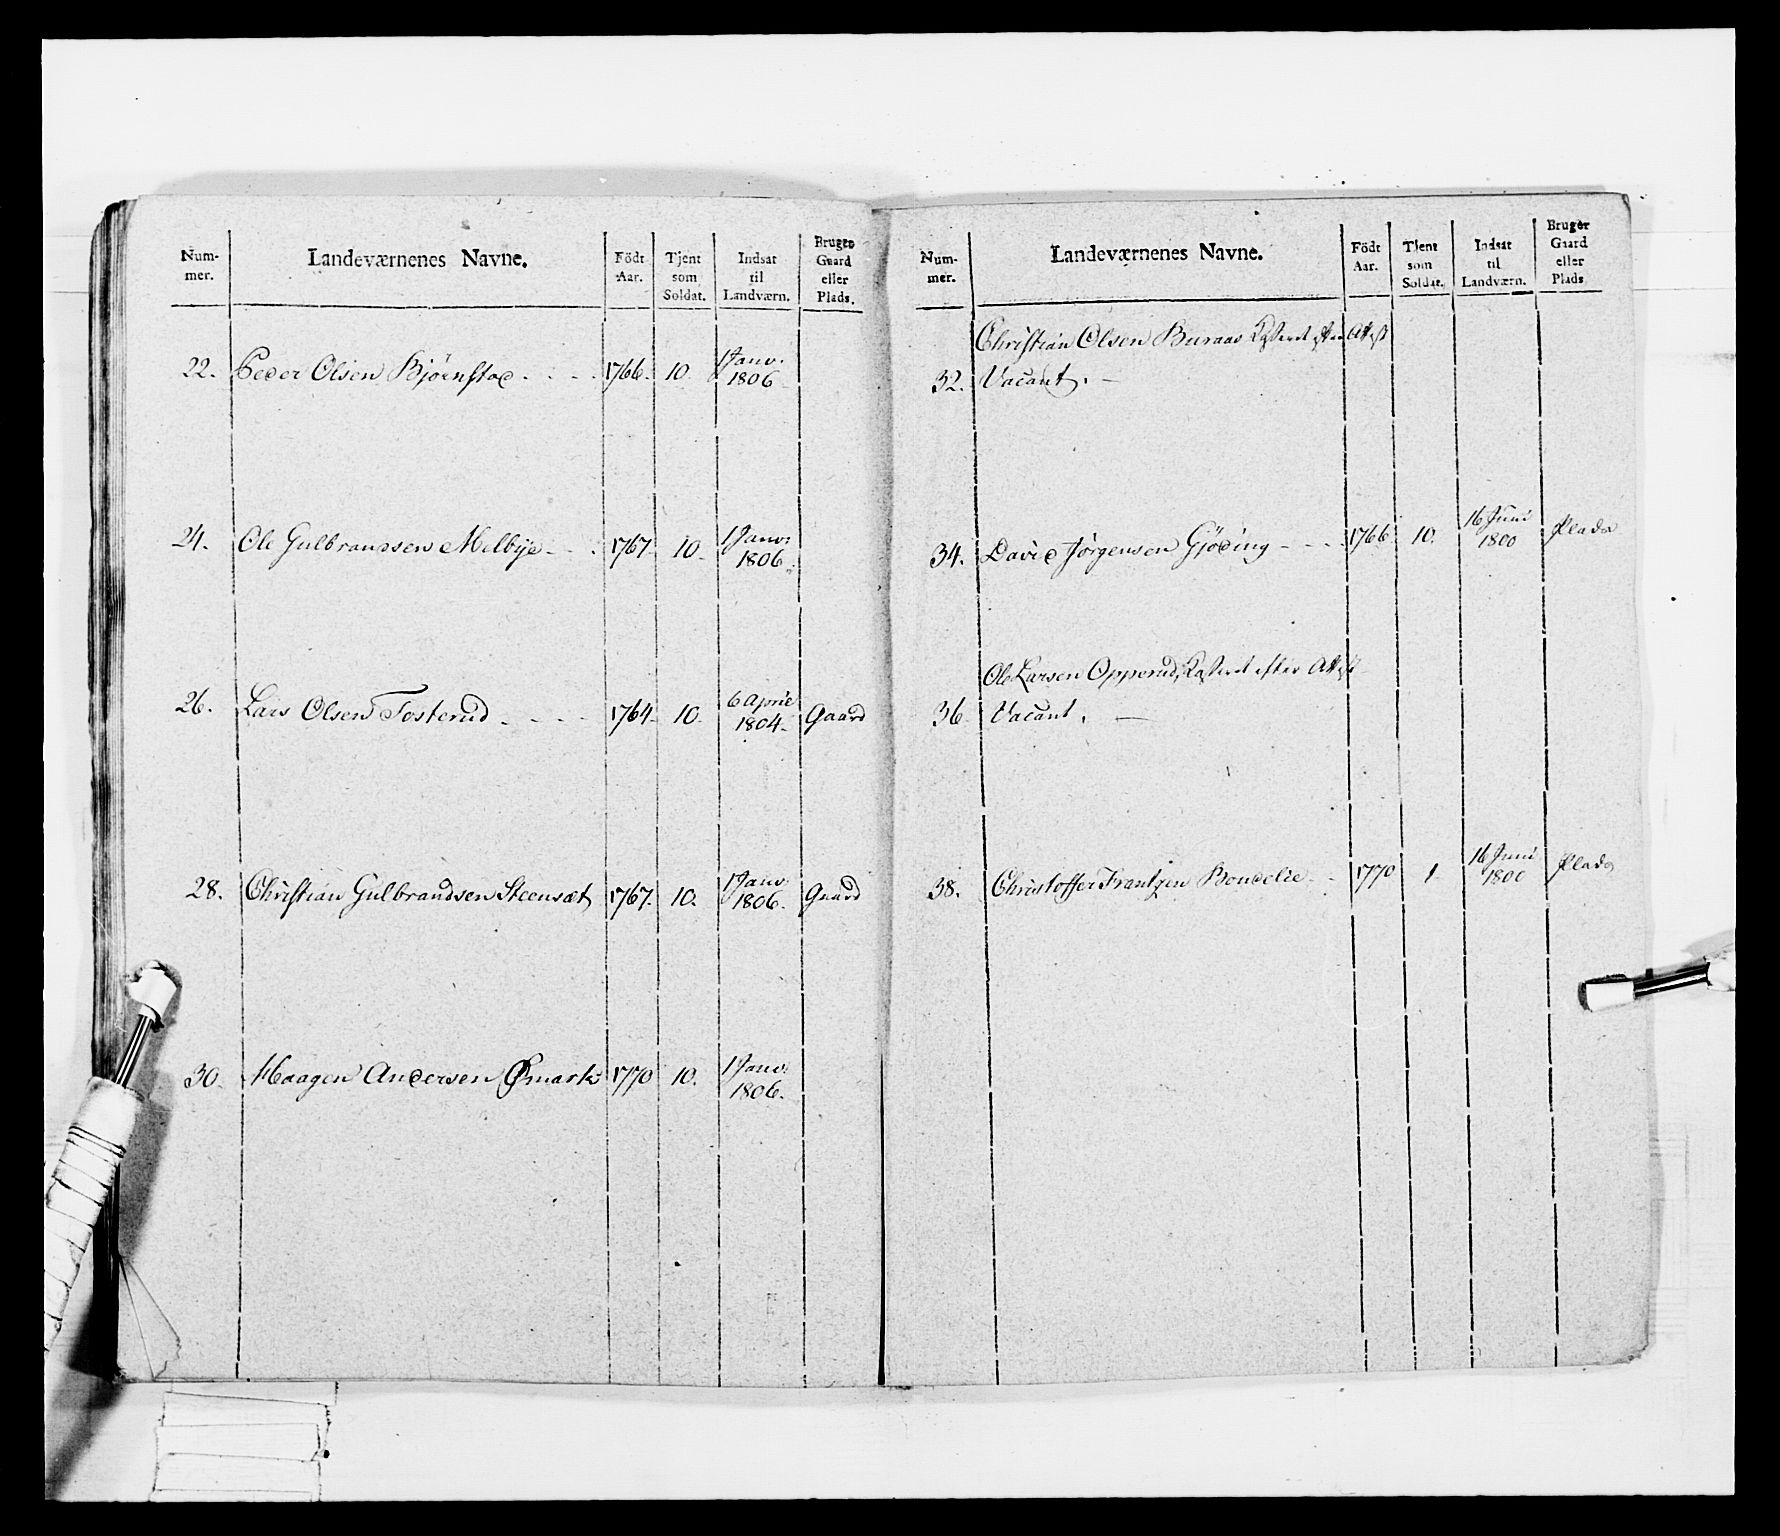 Num- Landeværnenes Navne. Födt Tjent Indsat Bruger
mer. Aar. som til Gaard
Soldat. Landværn. eller
Plads.
22. Peder Olsen Bjørnstad 1766. 10. 1 Janv: 1806
24. Ole Gulbrandsen Melbye 1767 10. 1 Janv: 1806.
26. Lars Olsen Fosterud 1764. 10. 6 April 1804. Gaard
28. Christian Gulbrandsen Steensæt 1767. 10. 1 Janv: 1806. Gaard
30. Haagen Andersen Ømark 1770 10. 1 Janv: 1806.
Num- Landeværnenes Navne. Födt Tjent Indsat Bruger
mer. Aar. som til Gaard
Soldat. Landværn. eller
Plads
Christian Olsen Buraas Kasseret efter Attest
32. Vacant.
34. David Jørgensen Gjøding 1766 10. 16 Juni 1800 Plads
Ole Larsen Opperud, Kasseret efter Attest
36. Vacant.
38. Christoffer Frantzen Bondelie 1770 1 16 Juni 1800 Plads